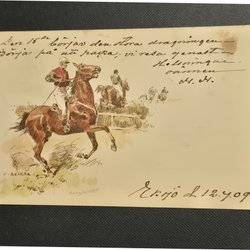 Den 15de börjar den stora dragningen
Börja på att packa, vi resa genast
Helsningar
vännen
M. M.
Eksjö d. 12-7-09